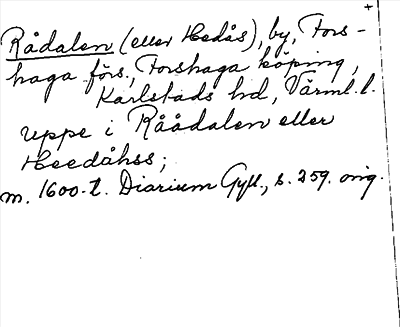 +
Rådalen (eller Hedås), by, Fors-
haga förs., Forshaga köping,
Karlstads hd, Värml. l.
uppe i Råådalen eller
Heedåhss;
m. 1600-t. Diarium Gyll., s. 259. orig.